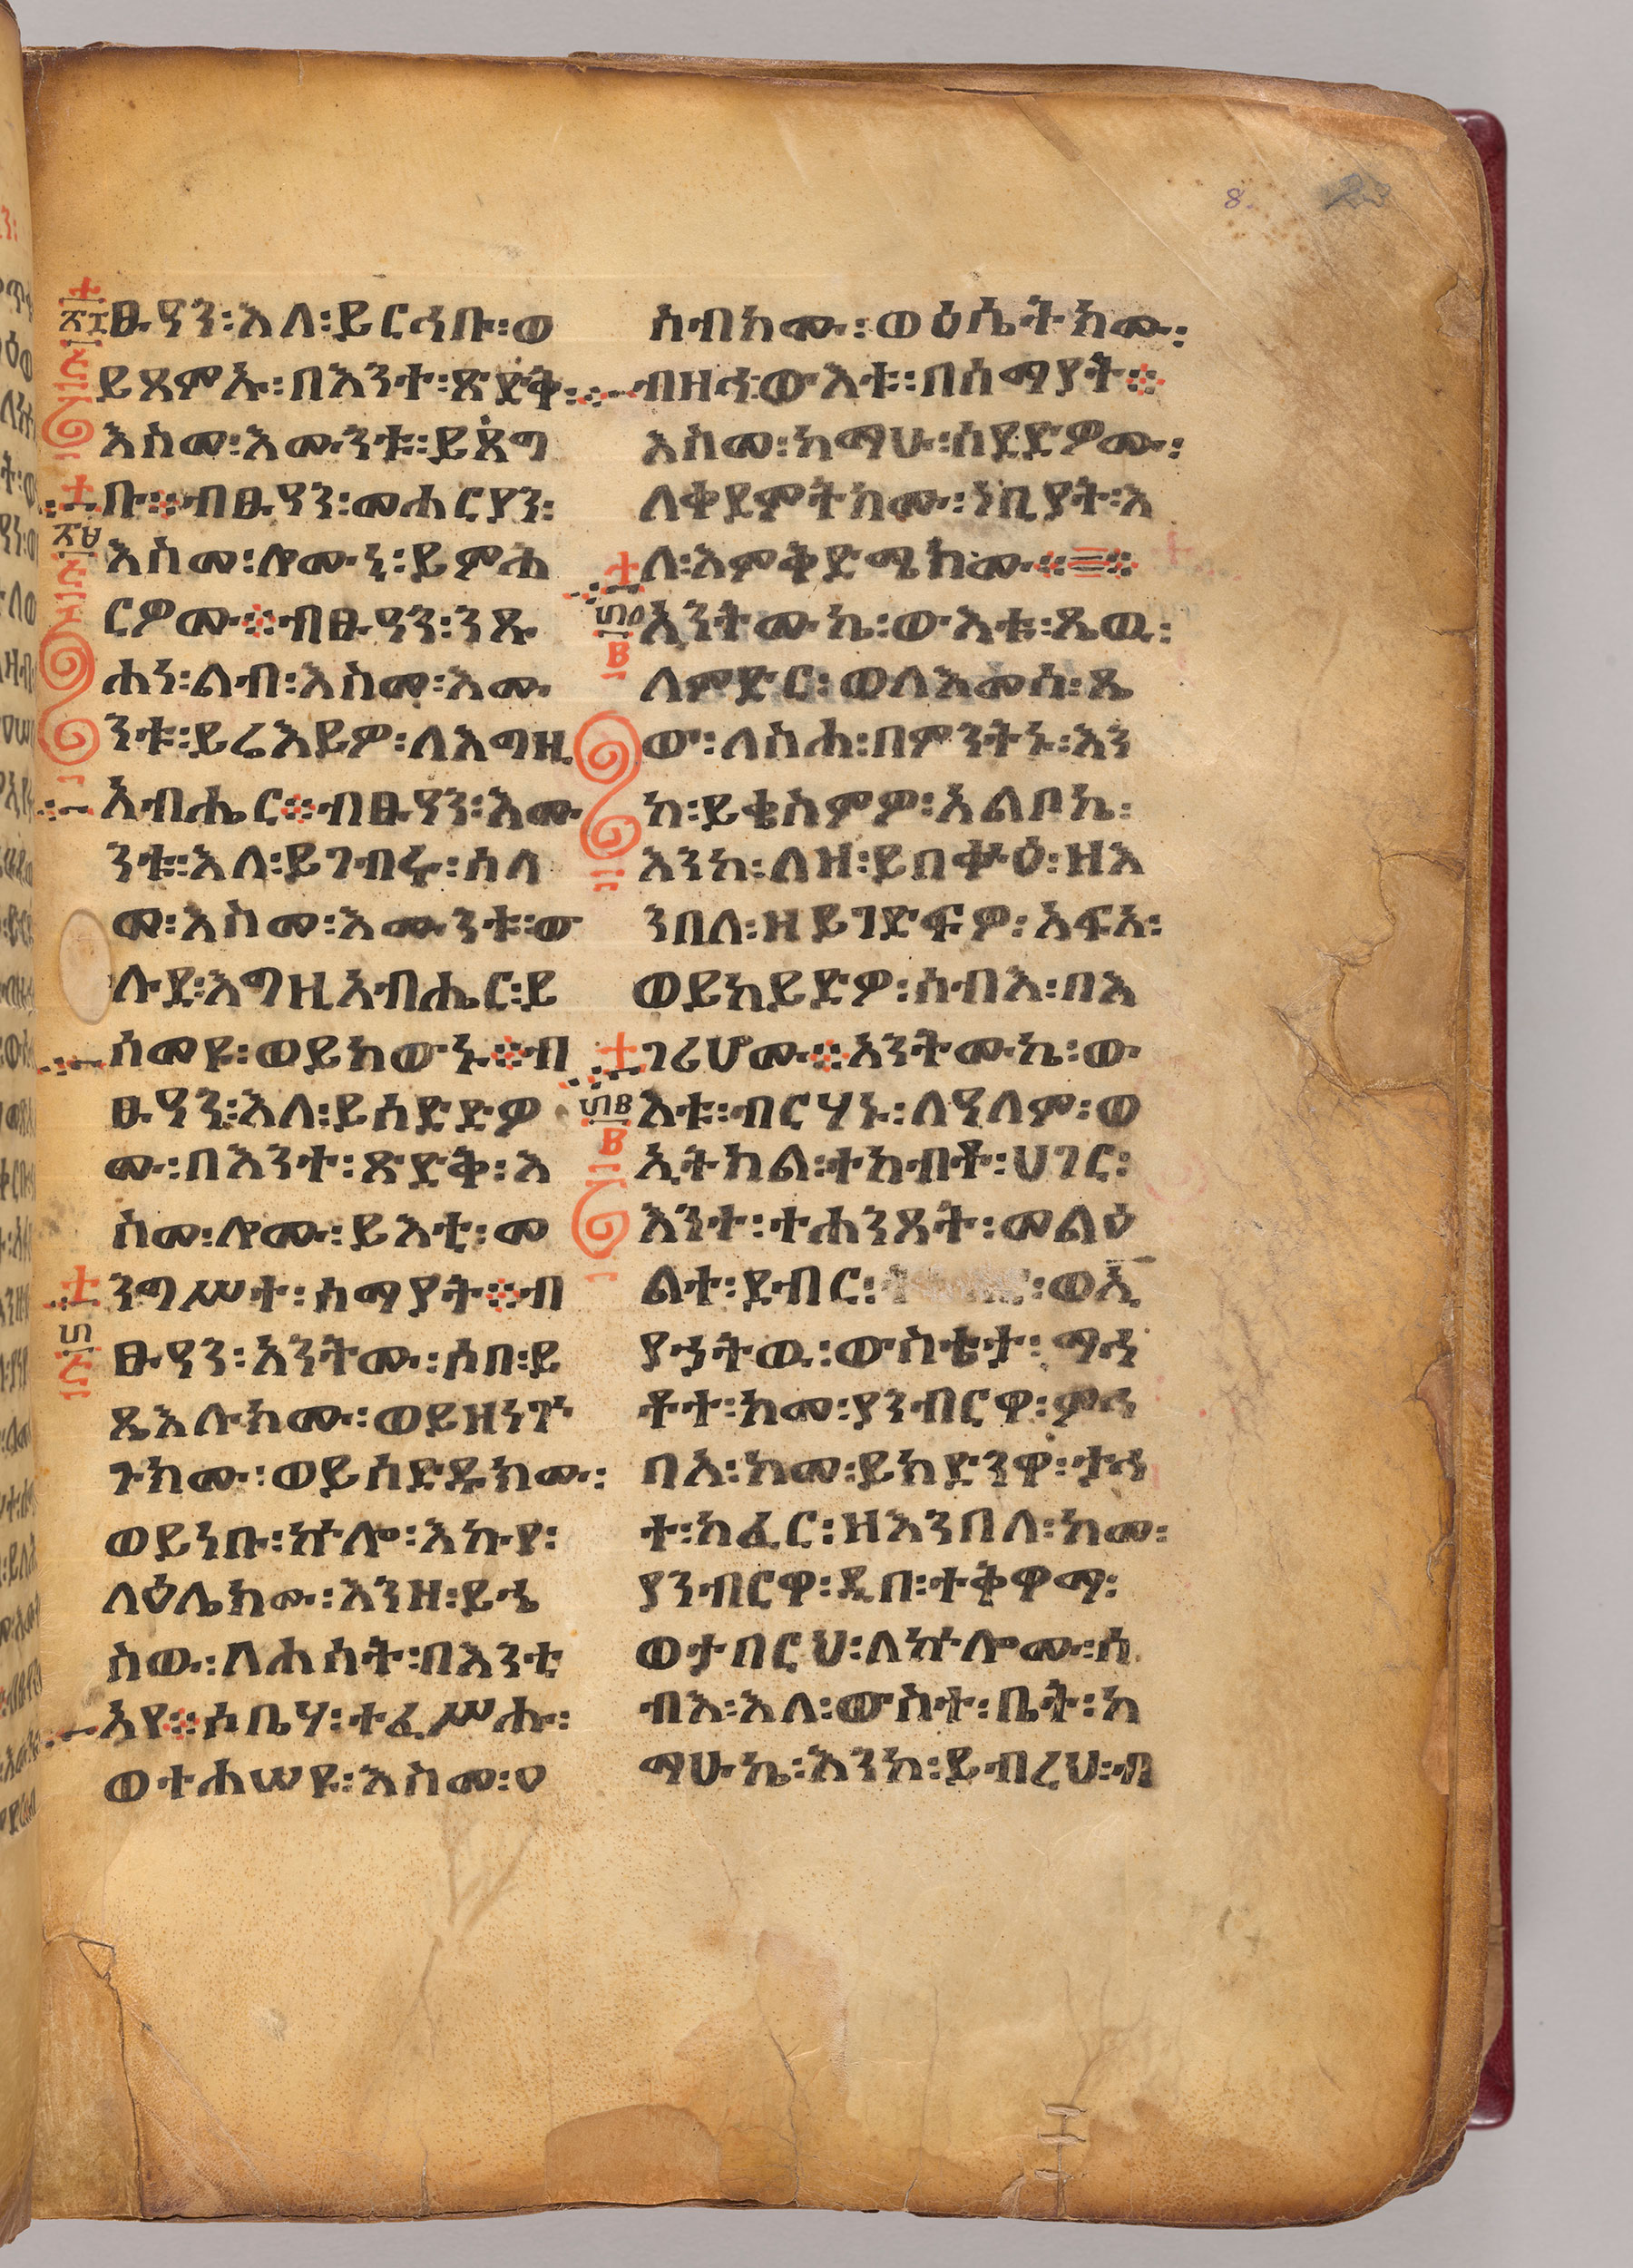 8.
23
ፁዓን፡እለ፡ይርኅቡ፡ወ
ይጸምኡ፡በእንተ፡ጽድቅ፡
እስመ፡እሙንቱ፡ይጸግ
ቡ፨ብፁዓን፡መሐርያን፡
እስመ፡ሎሙኒ፡ይምሕ
ርዎሙ፨ብፁዓን፡ንጹ
ሐነ፡ልብ፡እስመ፡እሙ
ንቱ፡ይሬእይዎ፡ለእግዚ
አብሔር፨ብፁዓን፡እሙ
ንቱ፡እለ፡ይገብሩ፡ሰላ
መ፡እስመ፡እሙንቱ፡ው
ሉደ፡እግዚአብሔር፡ይ
ሰመዩ፡ወይከውኑ፨ብ
ፁዓን፡እለ፡ይሰድድዎ
ሙ፡በእንተ፡ጽድቅ፡እ
ስመ፡ሎሙ፡ይእቲ፡መ
ንግሥተ፡ሰማያት፨ብ
ፁዓን፡አንትሙ፡ሶበ፡ይ
ጼእሉክሙ፡ወይዘነጐ
ጉክሙ፡ወይሰድዱክሙ፡
ወይነቡ፡ኵሎ፡እኩየ፡
ላዕሌክሙ፡እንዘ፡ይሔ
ስው፡ለሐሰት፡በእንቲ
አየ፨ሶቤሃ፡ተፈሥሑ፡
ወተሐሠዩ፡እስመ፡ዐ
ስብክሙ፡ወዕሴትክሙ፡
ብዙኅ፡ውእቱ፡በሰማያት፨
እስመ፡ከማሁ፡ሰደድዎሙ፡
ለቅደምትክሙ፡ነቢያት፡እ
ለ፡እምቅድሜክሙ፨=፨
አንትሙኬ፡ውእቱ፡ጼዉ፡
ለምድር፡ወለእመሰ፡ጼ
ው፡ለስሐ፡በምንትኑ፡እን
ከ፡ይቄስምዎ፡አልቦኬ፡
እንከ፡ለዘ፡ይበቍዕ፡ዘእ
ንበለ፡ዘይገድፍዎ፡አፍአ፡
ወይከይድዎ፡ሰብእ፡በእ
ገሪሆሙ፨አንትሙኬ፡ው
እቱ፡ብርሃኑ፡ለዓለም፡ወ
ኢትክል፡ተከብቶ፡ሀገር፡
እንተ፡ተሐንጸት፡መልዕ
ልተ፡ደብር፡ወኢ
ያኀትዉ፡ውስቴታ፡ማኅ
ቶተ፡ከመ፡ያንብርዋ፡ምኅ
በአ፡ከመ፡ይክድንዋ፡ታኅ
ተ፡ከፈር፡ዘእንበለ፡ከመ፡
ያንብርዋ፡ዲበ፡ተቅዋማ፡
ወታበርህ፡ለኵሎሙ፡ሰ
ብእ፡እለ፡ውስተ፡ቤት፡ከ
ማሁኬ፡እንከ፡ይብረህ፡ብ